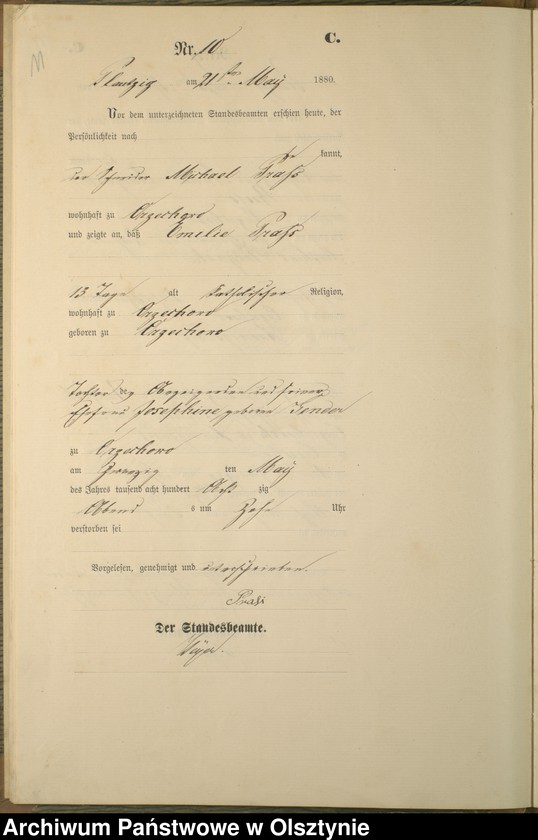 C.
Nr. 10
Plautzig am 21ten May 1880.
Vor dem unterzeichneten Standesbeamten erschien heute, der
Persönlichkeit nach
be kannt,
der Schneider Michael Prass
wohnhaft zu Orzechowo
und zeigte an, daß Emilie Prass
13 Tage alt katholischer Religion,
wohnhaft zu Orzechowo
geboren zu Orzechowo
Tochter des Anzeigenden und seiner
Ehefrau Josephine geborene
zu Orzechowo
am zwanzig ten May
des Jahres tausend acht hundert acht zig
Abend s um Zehn Uhr
verstorben sei
Vorgelesen, genehmigt und unterschrieben.
Prass
Der Standesbeamte.
Archiwum Państwowe w Olsztynie